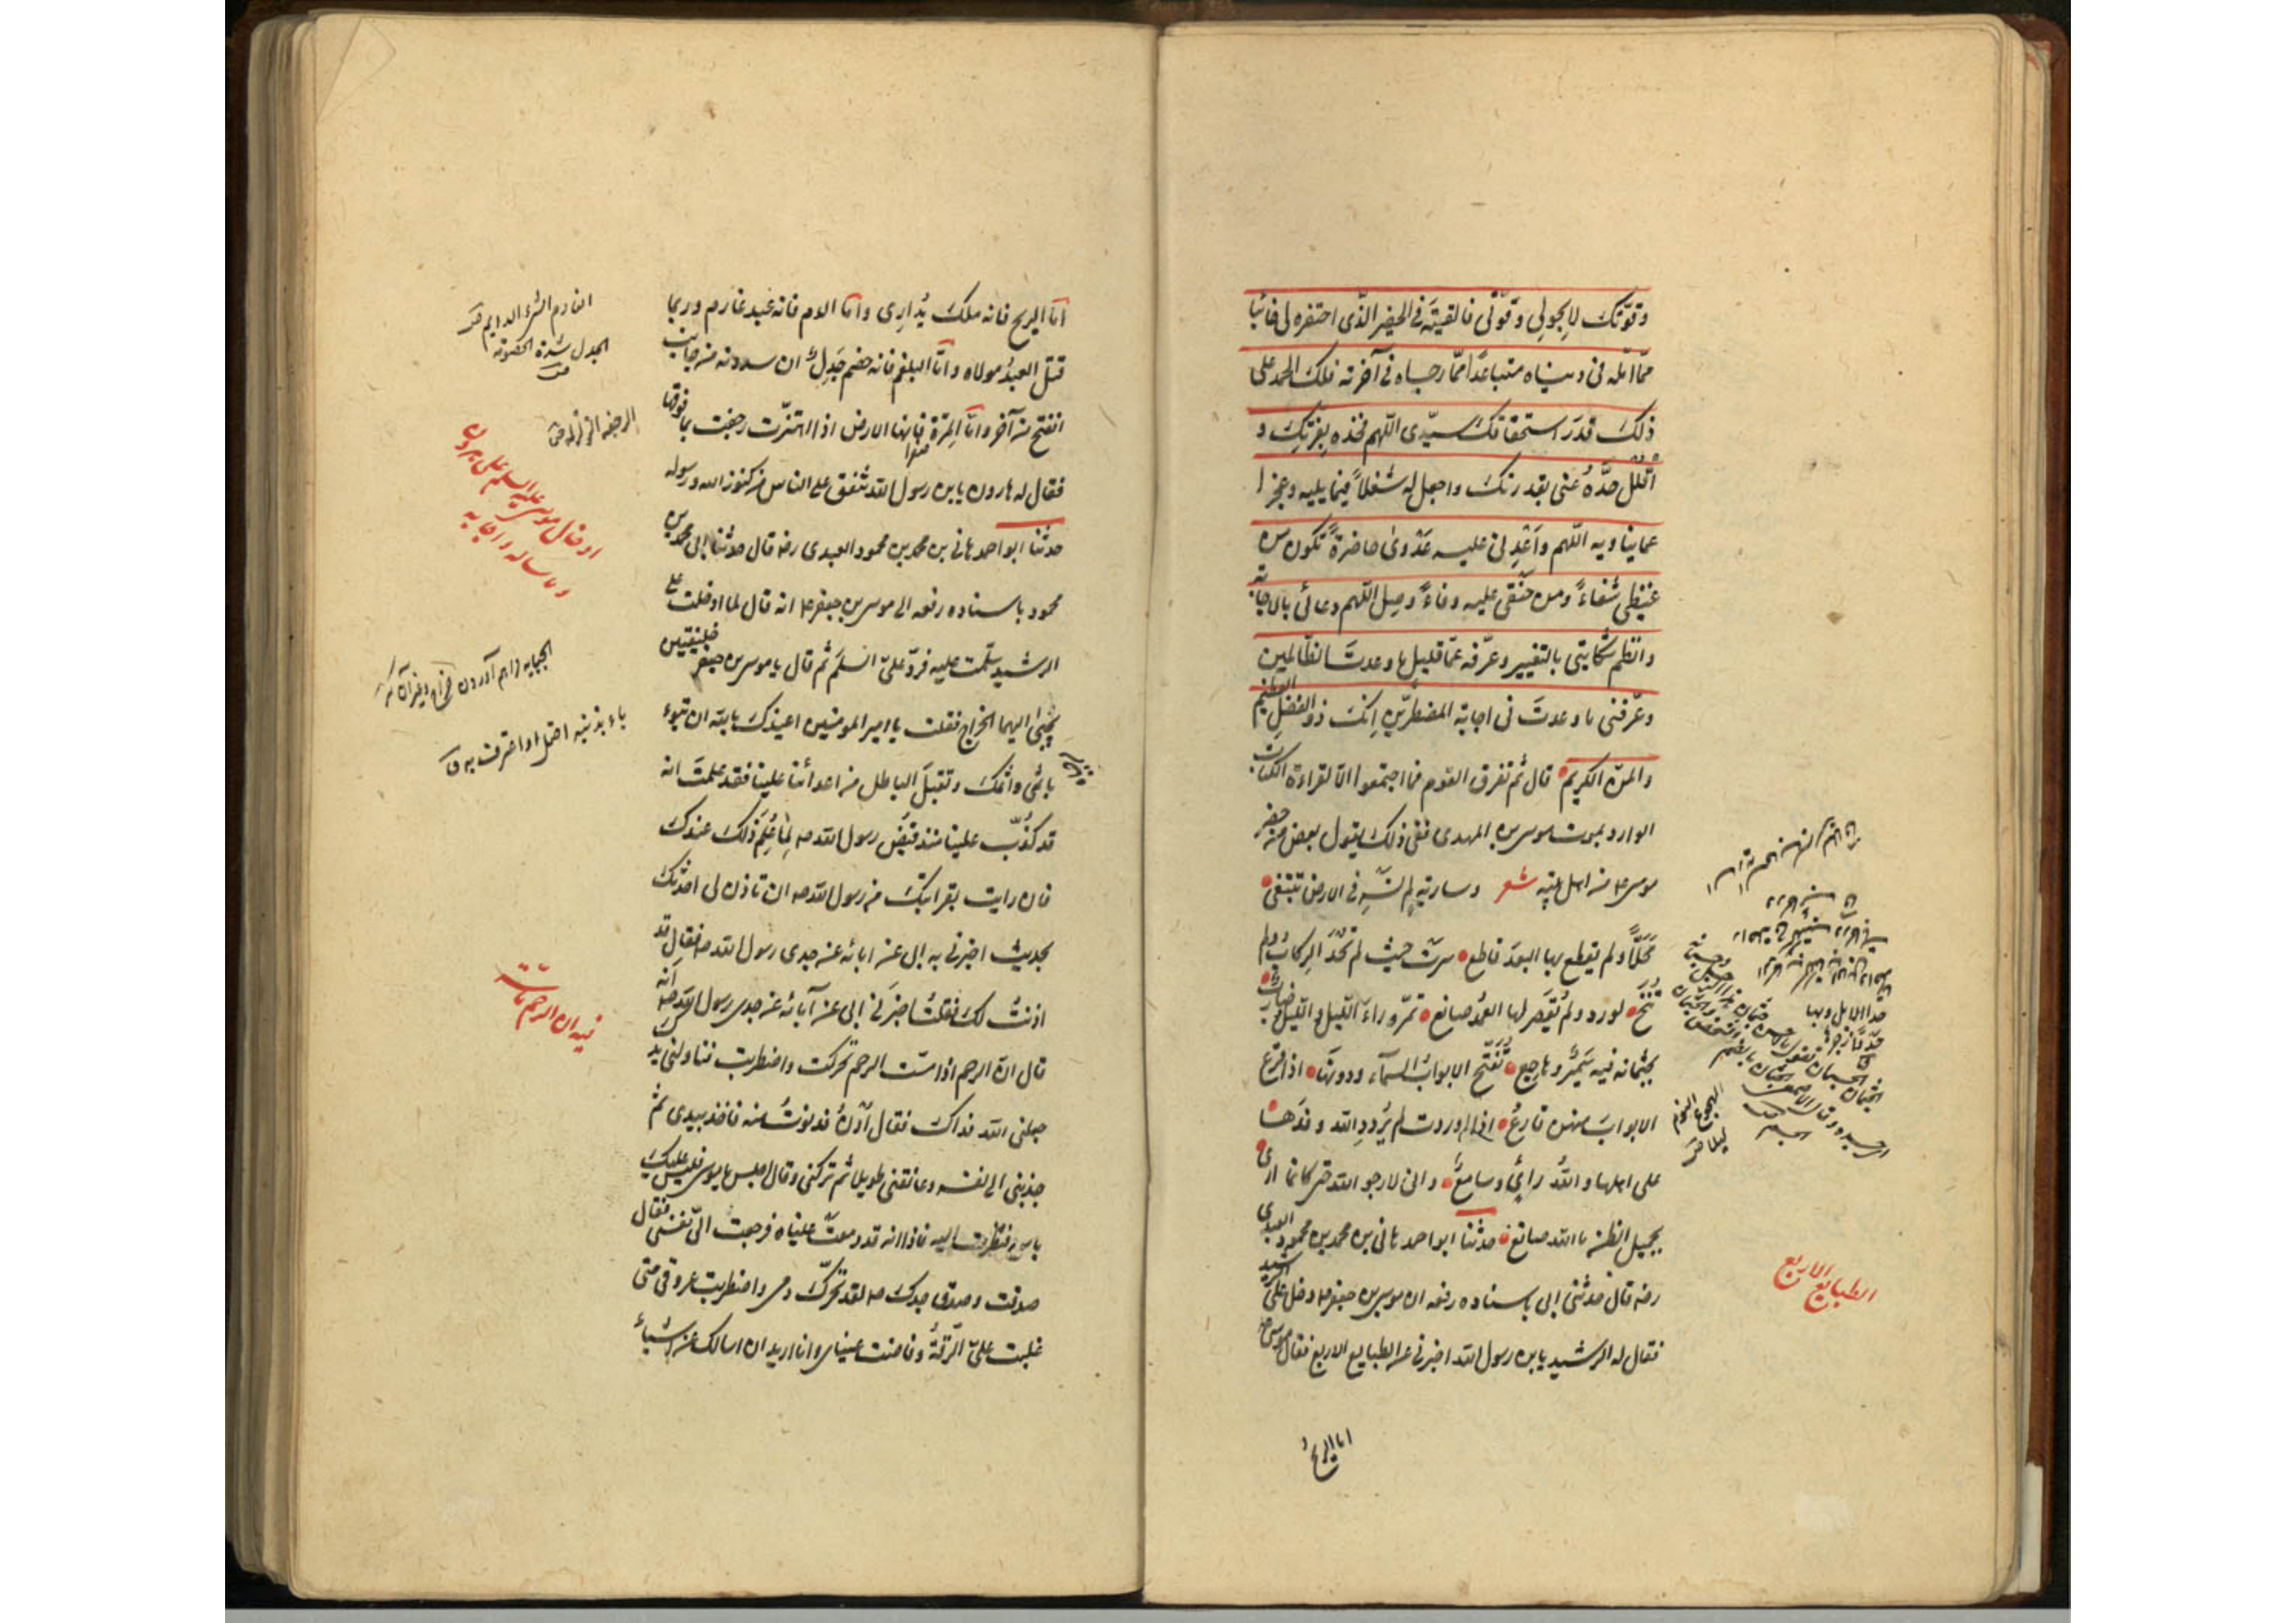 وقوّتك لا بحولي و قوّتي فالقيته في الحفير الذي احتفره لي خائبا
ممّا امّله في دنياه متباعدا ممّا رجاه في آخرته فلك الحمد على
ذلك قدر استحقاقك سيّدي اللّهم فخذه بعزّتك و
افلل حدّه عنّي بقدرتك واجعل له شغلاً فيما يليه وعجزا
عمّا يناويه اللّهم واعدني عليه عدوى حاضرة تكون من
غيظي شفاءً ومن حنقي عليه وفاءً وصل اللّهم دعائي بالاجابة
وانظم شكايتي بالتغيير وعرّفه عمّا قليل ما وعدت الظالمين
وعرّفني ما وعدت في اجابة المضطرّين انك ذو الفضل العظيم
والمنّ الكريم قال ثم تفرق القوم فما اجتمعوا الا لقراءة الكتاب
الوارد بموت موسى بن المهدي ففي ذلك يقول بعض من حضر
موسى ع من اهل بيته شعر وسارية لم تسر في الارض تبتغي
محلّاً ولم يقطع بها البعد قاطع سرت حيث لم تحد الركاب ولم
تنخ لورد ولم يقصر لها العبد صانع تمرّ وراء الليل والليل ضارب
بجثمانه فيه سمير وهاجع تفتّح الابواب السماء ودونها اذا قرع
الابواب منهن قارع اذا وردت لم يردد الله وفدها
على اهلها والله رائي وسامع واني لارجو الله حتى كانما ارى
بجميل الظن ما الله صانع حدثنا ابو احمد هاني بن محمد بن محمود العبدي
رضه قال حدثني ابي باسناده رفعه ان موسى بن جعفر ع دخل على الرشيد
فقال له الرشيد يابن رسول الله اخبرني عن الطبايع الاربع فقال موسى ع
اما الريح
الطبايع الاربع
الهجوع النوم
ليلا ص
امّا الريح فانه ملك يدارى وامّا الدم فانه عبد غارم وربما
قتل العبد مولاه وامّا البلغم فانه خصم جدل ان سددته من جانب
انفتح من آخر وامّا المرّة فانها الارض اذا اهتزّت رجفت بما فوقها
فقال له هارون يابن رسول الله تنفق على الناس من كنوز الله ورسوله
حدثنا ابو احمد هاني بن محمد بن محمود العبدي رضه قال حدثنا ابي محمد بن
محمود باسناده رفعه الى موسى بن جعفر ع انه قال لما ادخلت على
الرشيد سلّمت عليه فردّ عليّ السلم ثم قال يا موسى بن جعفر خليفتين
يجبى اليهما الخراج فقلت يا امير المومنين اعيذك بالله ان تبوء
باثمي واثمك وتقبل الباطل من اعدائنا علينا فقد علمت انه
قد كذّب علينا منذ قبض رسول الله صه بما علم ذلك عندك
فان رايت بقرابتك من رسول الله صه ان تاذن لي احدثك
بحديث اخبرني به ابي عن ابائه عن جدي رسول الله صه فقال قد
اذنت لك فقلت اخبرني ابي عن آبائه عن جدي رسول الله صه انه
قال انّ الرحم اذا مسّت الرحم تحركت واضطربت فناولني يدك
جعلني الله فداك فقال ادن فدنوت منه فاخذ بيدي ثم
جذبني الى نفسه وعانقني طويلا ثم تركني وقال اجلس يا موسى فليس عليك
باس فنظرت اليه فاذا انه قد دمعت عيناه فرجعت اليّ نفسي فقال
صدقت وصدق جدك صه لقد تحرّك دمي واضطربت عروقي حتى
غلبت عليّ الرّقّة وفاضت عيناي وانا اريد ان اسالك عن اشياء
الجدل شدة الخصومة
الرجفه الزلزله
ادخال موسى عليه السلم على هرون
وما ساله واجابه
باء بذنبه احتمل او اعترف به ق
فيه ان الرحم